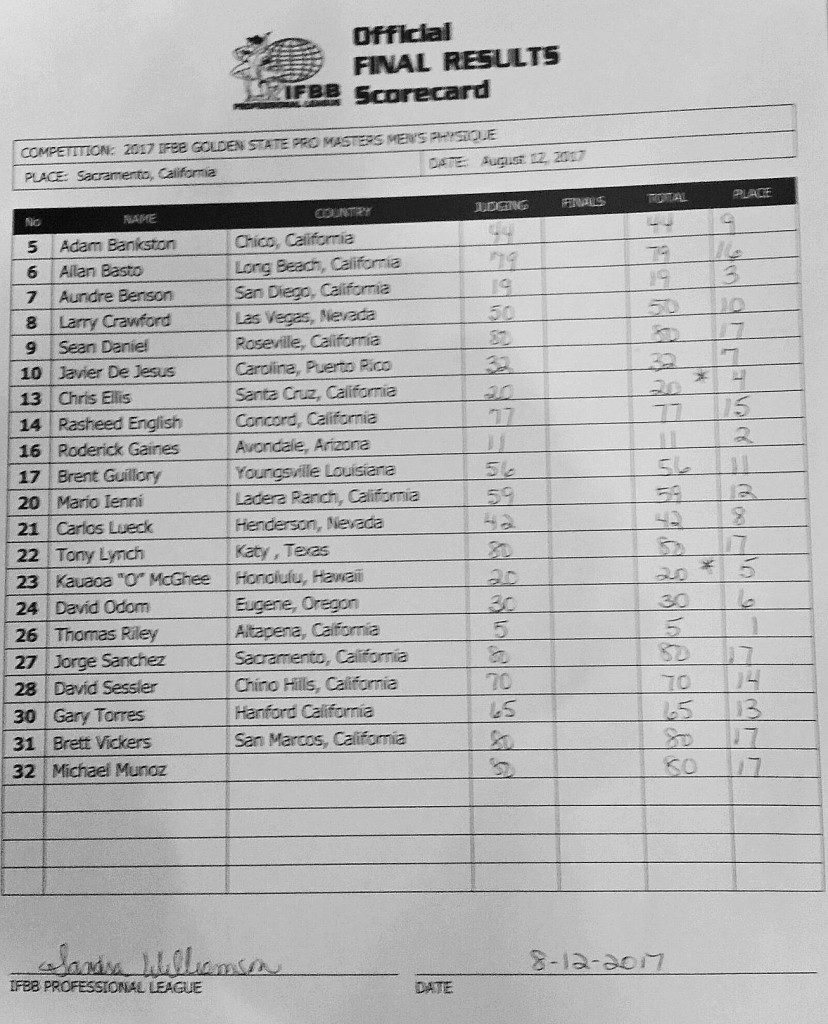 Official
FINAL RESULTS
Scorecard
IFBB
PROFESSIONAL LEAGUE
COMPETITION: 2017 IFBB GOLDEN STATE PRO MASTERS MEN'S PHYSIQUE
PLACE: Sacramento, California DATE: August 12, 2017
No NAME COUNTRY JUDGING FINALS TOTAL PLACE
5 Adam Bankston Chico, California 44 44 9
6 Allan Basto Long Beach, California 79 79 16
7 Aundre Benson San Diego, California 19 19 3
8 Larry Crawford Las Vegas, Nevada 50 50 10
9 Sean Daniel Roseville, California 80 80 17
10 Javier De Jesus Carolina, Puerto Rico 32 32 7
13 Chris Ellis Santa Cruz, California 20 20 * 4
14 Rasheed English Concord, California 77 77 15
16 Roderick Gaines Avondale, Arizona 11 11 2
17 Brent Guillory Youngsville Louisiana 56 56 11
20 Mario Ienni Ladera Ranch, California 59 59 12
21 Carlos Lueck Henderson, Nevada 42 42 8
22 Tony Lynch Katy , Texas 80 80 17
23 Kauaoa "O" McGhee Honolulu, Hawaii 20 20 * 5
24 David Odom Eugene, Oregon 30 30 6
26 Thomas Riley Altapena, California 5 5 1
27 Jorge Sanchez Sacramento, California 80 80 17
28 David Sessler Chino Hills, California 70 70 14
30 Gary Torres Hanford California 65 65 13
31 Brett Vickers San Marcos, California 80 80 17
32 Michael Munoz 80 80 17
Sandra Williamson 8-12-2017
IFBB PROFESSIONAL LEAGUE DATE